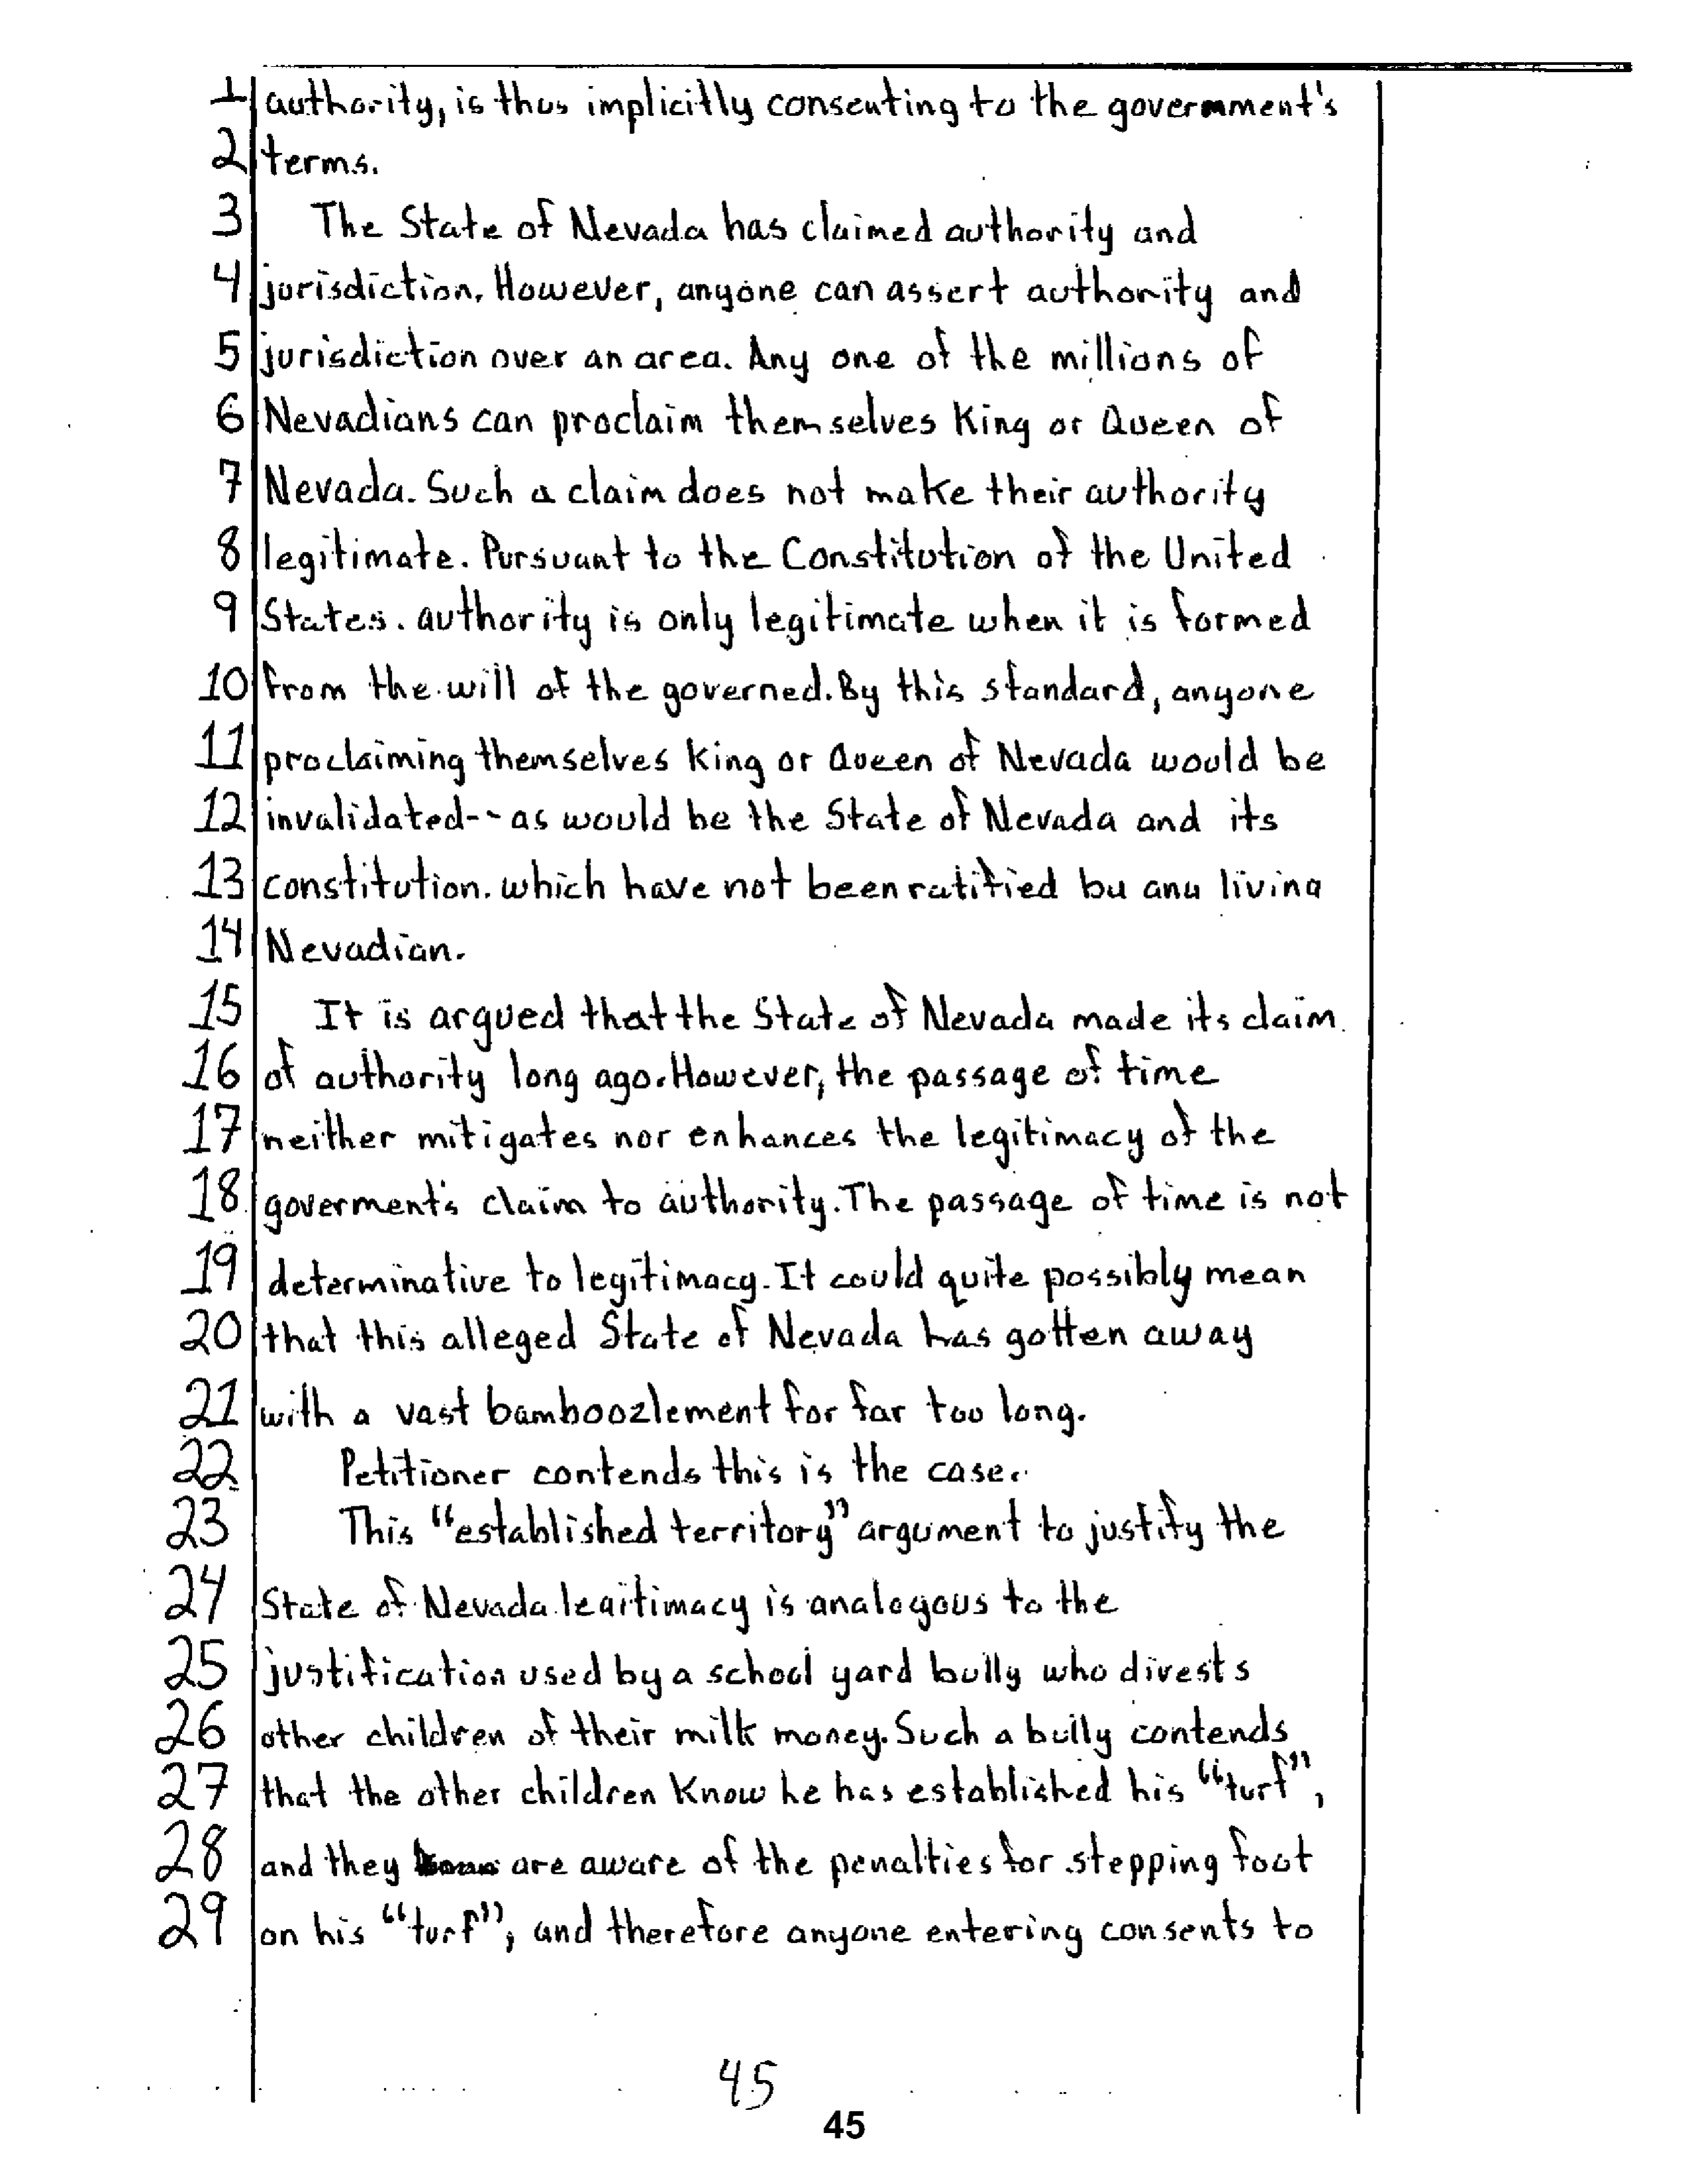 1 authority, is thus implicitly consenting to the government's
2 terms.
3 The State of Nevada has claimed authority and
4 jurisdiction. However, anyone can assert authority and
5 jurisdiction over an area. Any one of the millions of
6 Nevadians can proclaim themselves King or Queen of
7 Nevada. Such a claim does not make their authority
8 legitimate. Pursuant to the Constitution of the United
9 States. authority is only legitimate when it is formed
10 from the will of the governed. By this standard, anyone
11 proclaiming themselves King or Queen of Nevada would be
12 invalidated-- as would be the State of Nevada and its
13 constitution. which have not been ratified by any living
14 Nevadian.
15 It is argued that the State of Nevada made its claim
16 of authority long ago. However, the passage of time
17 neither mitigates nor enhances the legitimacy of the
18 goverment's claim to authority. The passage of time is not
19 determinative to legitimacy. It could quite possibly mean
20 that this alleged State of Nevada has gotten away
21 with a vast bamboozlement for far too long.
22 Petitioner contends this is the case.
23 This "established territory" argument to justify the
24 State of Nevada legitimacy is analogous to the
25 justification used by a school yard bully who divests
26 other children of their milk money. Such a bully contends
27 that the other children know he has established his "turf",
28 and they are aware of the penalties for stepping foot
29 on his "turf", and therefore anyone entering consents to
45
45